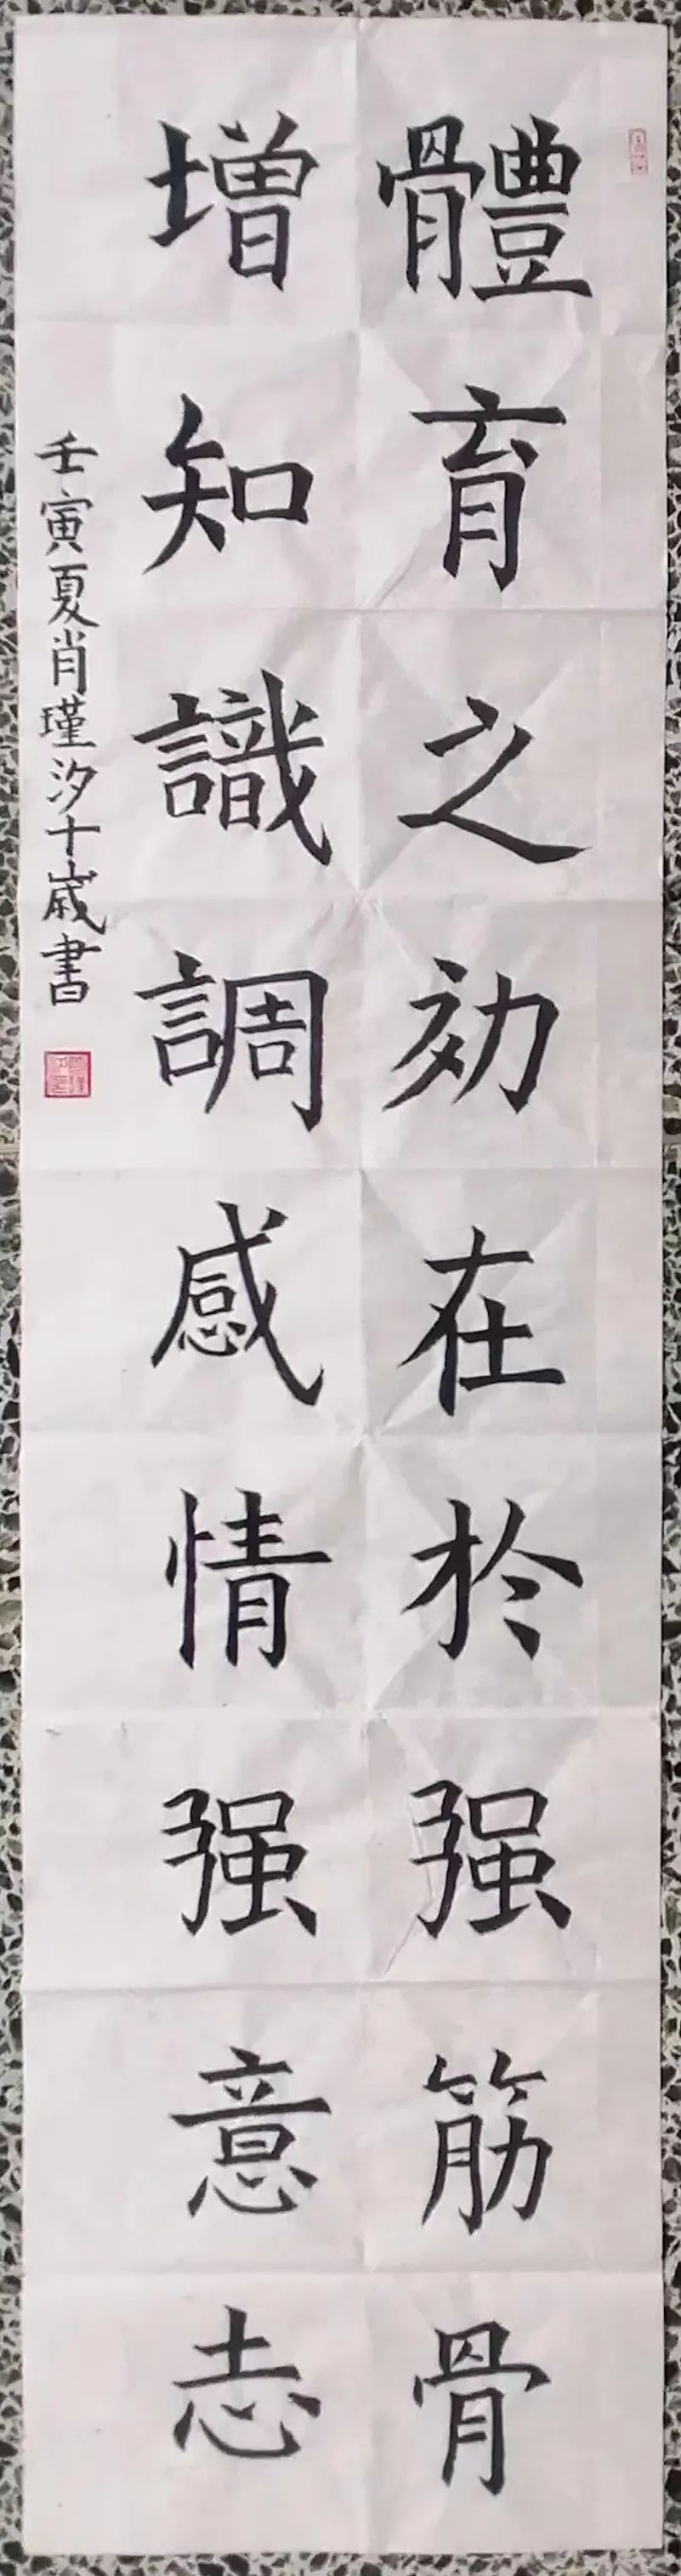 體育之効在於强筋骨
增知識調感情强意志
壬寅夏肖瑾汐十歲書